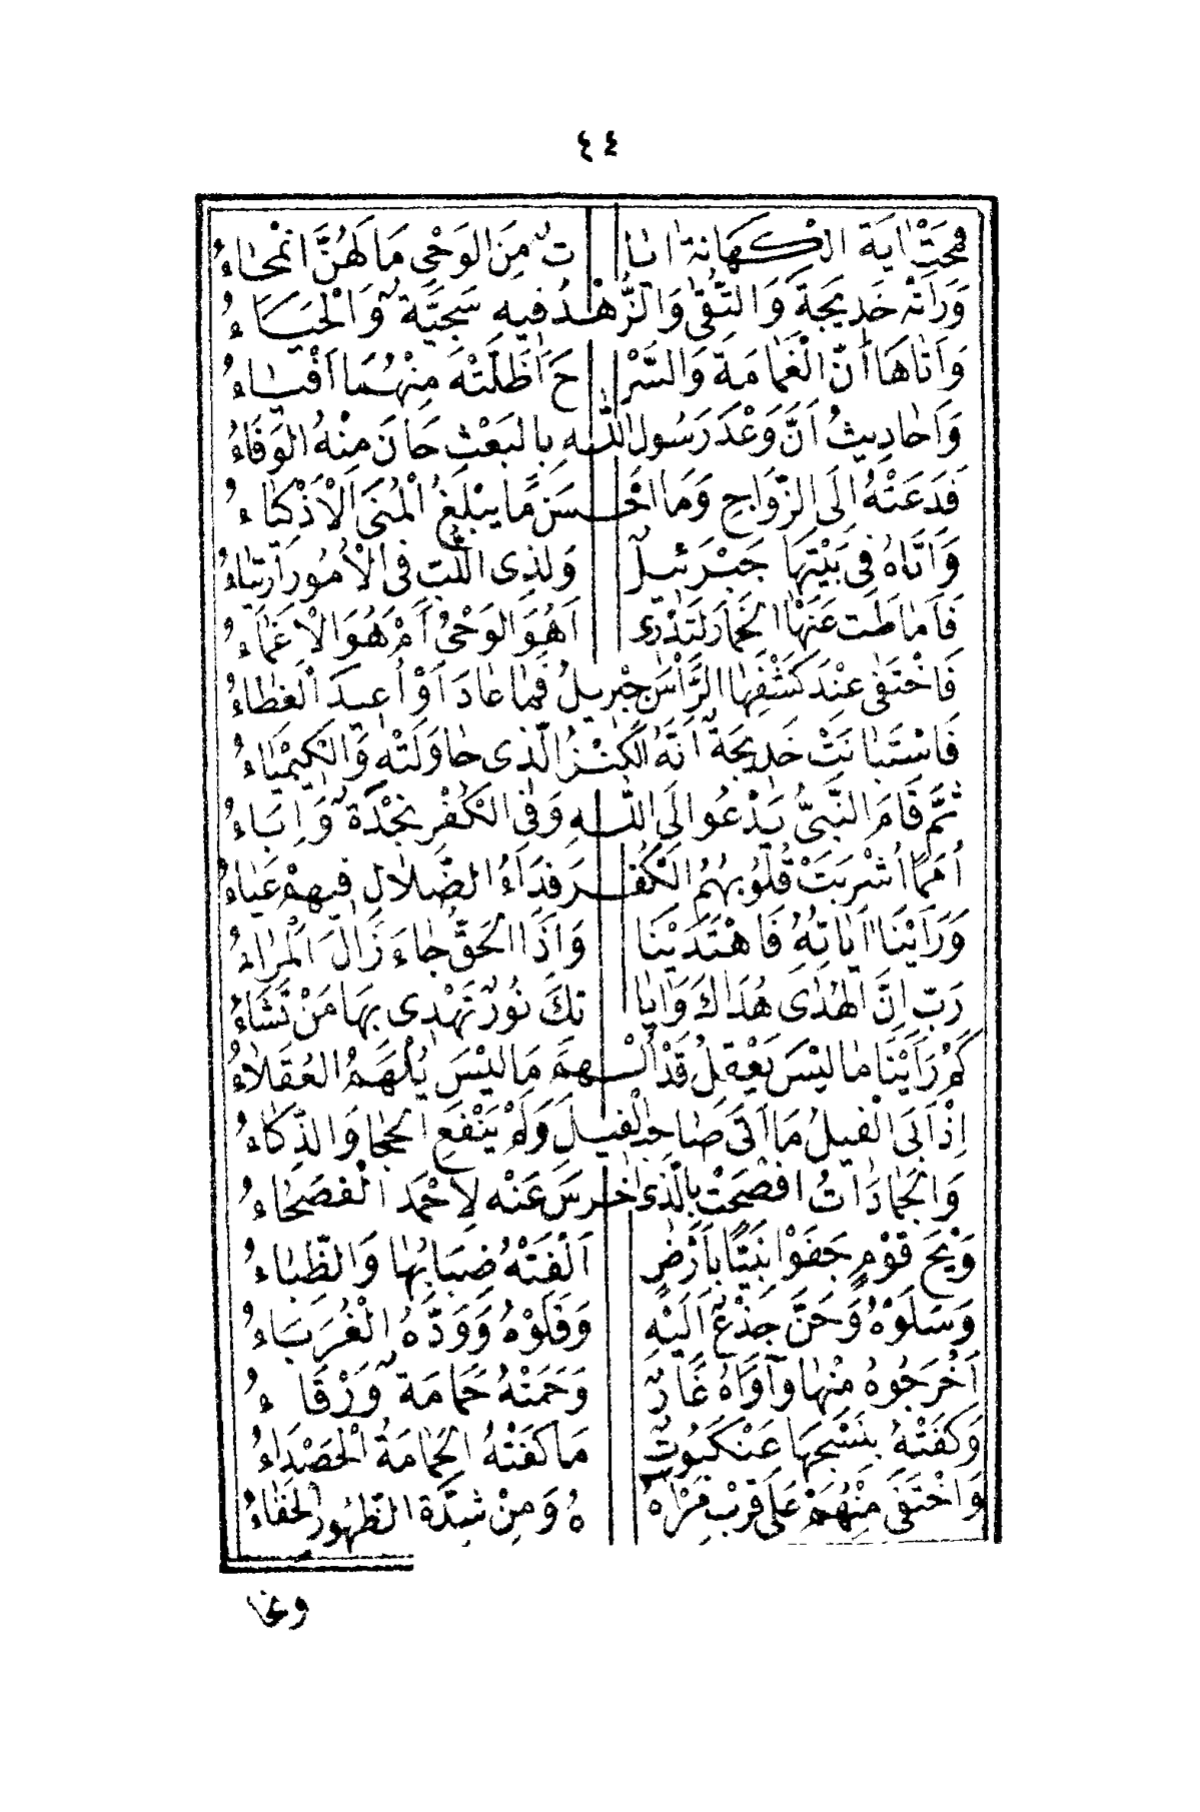 ٤٤
فَمَحَتْ اٰيَةَ الْكَهَانَةِ اٰيَا تٌ مِنَ الْوَحْىِ مَا لَهُنَّ انْمِحَاءُ
وَرَاَتْهُ خَدِيجَةٌ وَالتُّقٰى وَالزُّهْدُ فِيهِ سَجِيَّةٌ وَالْحَيَاءُ
وَاَتَاهَا اَنَّ الْغَمَامَةَ وَالسَّرْ حَ اَظَلَّتْهُ مِنْهُمَا اَفْيَاءُ
وَاَحَادِيثُ اَنَّ وَعْدَ رَسُولِ اللّٰهِ بِالْبَعْثِ حَانَ مِنْهُ الْوَفَاءُ
فَدَعَتْهُ اِلَى الزَّوَاجِ وَمَا اَحْسَنَ مَا يَبْلُغُ الْمُنَى الْاَذْكِيَاءُ
وَاَتَاهُ فِى بَيْتِهَا جَبْرَئِيلٌ وَلِذِى اللُّبِّ فِى الْاُمُورِ ارْتِيَاءُ
فَاَمَاطَتْ عَنْهَا الْخِمَارَ لِتَدْرِى اَهُوَ الْوَحْىُ اَمْ هُوَ الْاِغْمَاءُ
فَاخْتَفٰى عِنْدَ كَشْفِهَا الرَّأْسَ جِبْرِيلُ فَمَا عَادَ اَوْ اُعِيدَ الْغِطَاءُ
فَاسْتَبَانَتْ خَدِيجَةٌ اَنَّهُ الْكَنْزُ الَّذِى حَاوَلَتْهُ وَالْكِيمْيَاءُ
ثُمَّ قَامَ النَّبِىُّ يَدْعُو اِلَى اللّٰهِ وَفِى الْكُفْرِ نَجْدَةٌ وَاِبَاءُ
اُمَمًا اُشْرِبَتْ قُلُوبُهُمُ الْكُفْرَ فَدَاءُ الضَّلَالِ فِيهِمْ عَيَاءُ
وَرَاَيْنَا اٰيَاتِهِ فَاهْتَدَيْنَا وَاِذَا الْحَقُّ جَاءَ زَالَ الْمِرَاءُ
رَبِّ اِنَّ الْهُدٰى هُدَاكَ وَاٰيَا تُكَ نُورٌ تَهْدِى بِهَا مَنْ تَشَاءُ
كَمْ رَاَيْنَا مَا لَيْسَ يَعْقِلُ قَدْ اُلْهِمَ مَا لَيْسَ يُلْهَمُ الْعُقَلَاءُ
اِذْ اَبَى الْفِيلُ مَا اَتٰى صَاحِبُ الْفِيلِ وَلَمْ يَنْفَعِ الْحِجَا وَالذَّكَاءُ
وَالْجَمَادَاتُ اَفْصَحَتْ بِالَّذِى اُخْرِسَ عَنْهُ لِاَحْمَدَ الْفُصَحَاءُ
وَيْحَ قَوْمٍ جَفَوْا نَبِيًّا بِاَرْضٍ اَلِفَتْهُ ضِبَابُهَا وَالظِّبَاءُ
وَسَلَوْهُ وَحَنَّ جِذْعٌ اِلَيْهِ وَقَلَوْهُ وَوَدَّهُ الْغُرَبَاءُ
اَخْرَجُوهُ مِنْهَا وَآوَاهُ غَارٌ وَحَمَتْهُ حَمَامَةٌ وَرْقَاءُ
وَكَفَتْهُ بِنَسْجِهَا عَنْكَبُوتٌ مَا كَفَتْهُ الْحَمَامَةُ الْحَصْدَاءُ
وَاخْتَفٰى مِنْهُمْ عَلٰى قُرْبِ مَرْاٰهُ هُ وَمِنْ شِدَّةِ الظُّهُورِ الْخَفَاءُ
ونحا